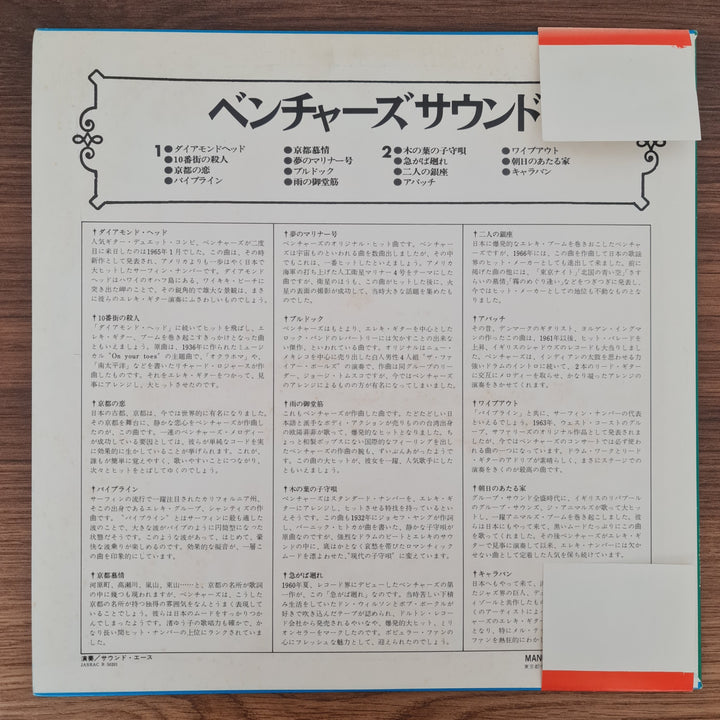 ベンチャーズサウンド
1●ダイアモンドヘッド
●10番街の殺人
●京都の恋
●パイプライン
●京都慕情
●夢のマリナー号
●ブルドック
●雨の御堂筋
2●木の葉の子守唄
●急がば廻れ
●二人の銀座
●アパッチ
●ワイプアウト
●朝日のあたる家
●キャラバン
†ダイアモンド・ヘッド
人気ギター・デュエット・コンビ、ベンチャーズが二度
目に来日したのは1965年1月でした。この曲は、その時
新作として発表され、アメリカよりも一歩はやく日本で
大ヒットしたサーフィン・ナンバーです。ダイアモンド
ヘッドはハワイのオハフ島にある、ワイキキ・ビーチに
突き出た岬のことで、その鋭角的で雄大な景観は、まさ
に彼らのエレキ・ギター演奏にふさわしいものでしょう。
†10番街の殺人
「ダイアモンド・ヘッド」に続いてヒットを飛ばし、エ
レキ・ギター、ブームを巻き起こすきっかけとなった曲
ともいえましょう。原曲は、1936年に作られたミュージ
カル "On your toes" の主題曲で、「オクラホマ」や、
「南太平洋」などを書いたリチャード・ロジャースが作
曲したものです。それをエレキ・ギターをつかって、見
事にアレンジし、大ヒットさせたのです。
†京都の恋
日本の古都、京都は、今では世界的に有名になりました。
その京都を舞台に、静かな恋をベンチャーズが作曲し
たのが、この曲です。一連のベンチャーズ・メロディー
が成功している要因としては、彼らが単純なコードを実
に効果的に生かしていることが挙げられます。これが、
誰もが簡単に覚えやすく、歌いやすいことにつながり、
次々とヒットをとばしてゆくのでしょう。
†パイプライン
サーフィンの流行で一躍注目されたカリフォルニア州、
そこの出身であるエレキ・グループ、シャンティズの作
曲です。"パイプライン" とはサーフィンに最も適した
波のことで、大きな波がパイプのように円筒型になった
状態だそうです。このような波があって、はじめて、豪
快な波乗りが楽しめるのです。効果的な擬音が、一層こ
の曲を印象的にしています。
†京都慕情
河原町、高瀬川、嵐山、東山……と、京都の名所が歌詞
の中に幾つも現われますが、ベンチャーズは、こうした
京都の名所が持つ独得の雰囲気をなんとうまく表現して
いることでしょう。彼らは日本のムードをすっかりつか
んでしまったようです。渚ゆう子の歌唱力も確かで、か
なり長い間ヒット・ナンバーの上位にランクされていま
した。
†夢のマリナー号
ベンチャーズのオリジナル・ヒット曲です。ベンチャー
ズは宇宙ものといわれる曲を数曲出しましたが、その中
でもこれは、一番ヒットしたといえましょう。アメリカ
海軍の打ち上げた人工衛星マリナー4号をテーマにした
曲ですが、衛星のほうも、この曲がヒットした後に、火
星の表面の撮影が成功して、当時大きな話題を集めたも
のでした。
†ブルドック
ベンチャーズはもとより、エレキ・ギターを中心とした
ロック・バンドのレパートリーには欠かすことの出来な
い傑作、といわれている曲です。オリジナルはニュー・
メキシコを中心に売り出した白人男性4人組 "ザ・ファ
イアー・ボールズ" の演奏で、作曲は同グループのリー
ダー、ジョージ・トムスコですが、今ではベンチャーズ
のアレンジによるものの方が有名になってしまいました。
†雨の御堂筋
これもベンチャーズが作曲した曲です。たどたどしい日
本語と派手なボディ・アクションが売りものの台湾出身
の欧陽菲菲が歌って、爆発的なヒットとなりました。ち
ょっと和製ポップスにない国際的なフィーリングを出し
たベンチャーズの作曲の腕も、すいぶんあがったようで
す。この曲の大ヒットが、彼女を一躍、人気歌手にした
ともいえましょう。
†木の葉の子守唄
ベンチャーズはスタンダード・ナンバーを、エレキ・ギ
ターにアレンジし、ヒットさせる特技を持っているとい
えそうです。この曲も1932年にジョセフ・ヤングが作詞
し、バーニィケ・ペトカが曲を書いた、静かな子守唄が
原曲なのですが、強烈なドラムのビートとエレキのサウ
ンドの中に、歳はかとなく哀愁を帯びたロマンティック
ムードを漂よわせた、"現代の子守唄" に変えています。
†急がば廻れ
1960年夏、レコード界にデビューしたベンチャーズの第
一作が、この「急がば廻れ」なのです。当時苦しい下積
み生活をしていたドン・ウィルソンとボブ・ボークルが
好きで吹き込んだテープが認められ、アルトン・レコー
ド会社から発売されるやいなや、爆発的大ヒット、ミリ
オンセラーをマークしたのです。ポピュラー・ファンの
心にフレッシュな魅力として、迎えられたのでしょう。
†二人の銀座
日本に爆発的なエレキ・ブームを巻きおこしたベンチャ
ーズですが、1966年には、この曲を作曲して日本の歌謡
界のヒット・メーカーとしても進出して来ました。前に
掲げた曲の他には、「東京ナイト」「北国の青い空」、「さ
すらいの慕情」「霧のめぐり逢い」、などをつぎつぎに発表し、
今ではヒット・メーカーとしての地位も不動なものとな
りました。
†アパッチ
その昔、デンマークのギタリスト、ヨルゲン・イングマ
ンの作ったこの曲は、1961年以後、ヒット・パレードを
上昇、イギリスのシャドウズのレコードも大当りしまし
た。ベンチャーズは、インディアンの太鼓を思わせる力
強いドラムのイントロに続いて、2本のリード・ギター
に交互にメロディーを取らせ、かなり凝ったアレンジの
演奏をきかせてくれます。
†ワイプアウト
「パイプライン」と共に、サーフィン・ナンバーの代表
といえるでしょう。1963年、ウェスト・コーストのグル
ープ、サファリーズのオリジナル作品として発表されま
したが、今ではベンチャーズのコンサートでは必ず使わ
れる曲の一つになっています。ドラム・ワークとリード・
ギターのアドリブが素晴らしく、まさにステージでの
演奏をきくのが最高の曲です。
†朝日のあたる家
グループ・サウンズ全盛時代に、イギリスのリバプール
のグループ・サウンズ、ジ・アニマルズが歌って大ヒッ
トし、一躍アニマルズ・ブームを巻き起こしました。彼
らは日本にもやって来て、黒いムードたっぷりにこの曲
を歌ってくれました。その後ベンチャーズがエレキ・ギ
ターで見事に演奏して以来、エレキ・ナンバーには欠か
せない曲として定着した人気を保ち続けています。
†キャラバン
日本へもやって来て、
たジャズ界の巨人、デ
ィゾールと共作したも
にもとづいたこの曲を
ーズのエレキ・ギター
となり、特にメル・テ
ファンを熱狂的にわか
演奏/サウンド・エース
JASRAC R-30201
MAN